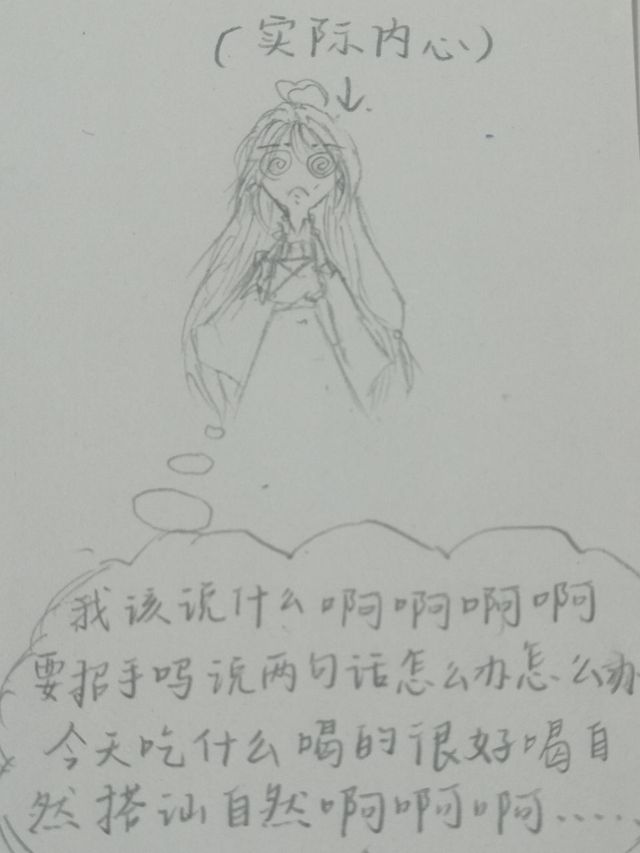 (实际内心)
我该说什么啊啊啊啊
要招手吗说两句话怎么办怎么办
今天吃什么喝的很好喝自
然搭讪自然啊啊啊……